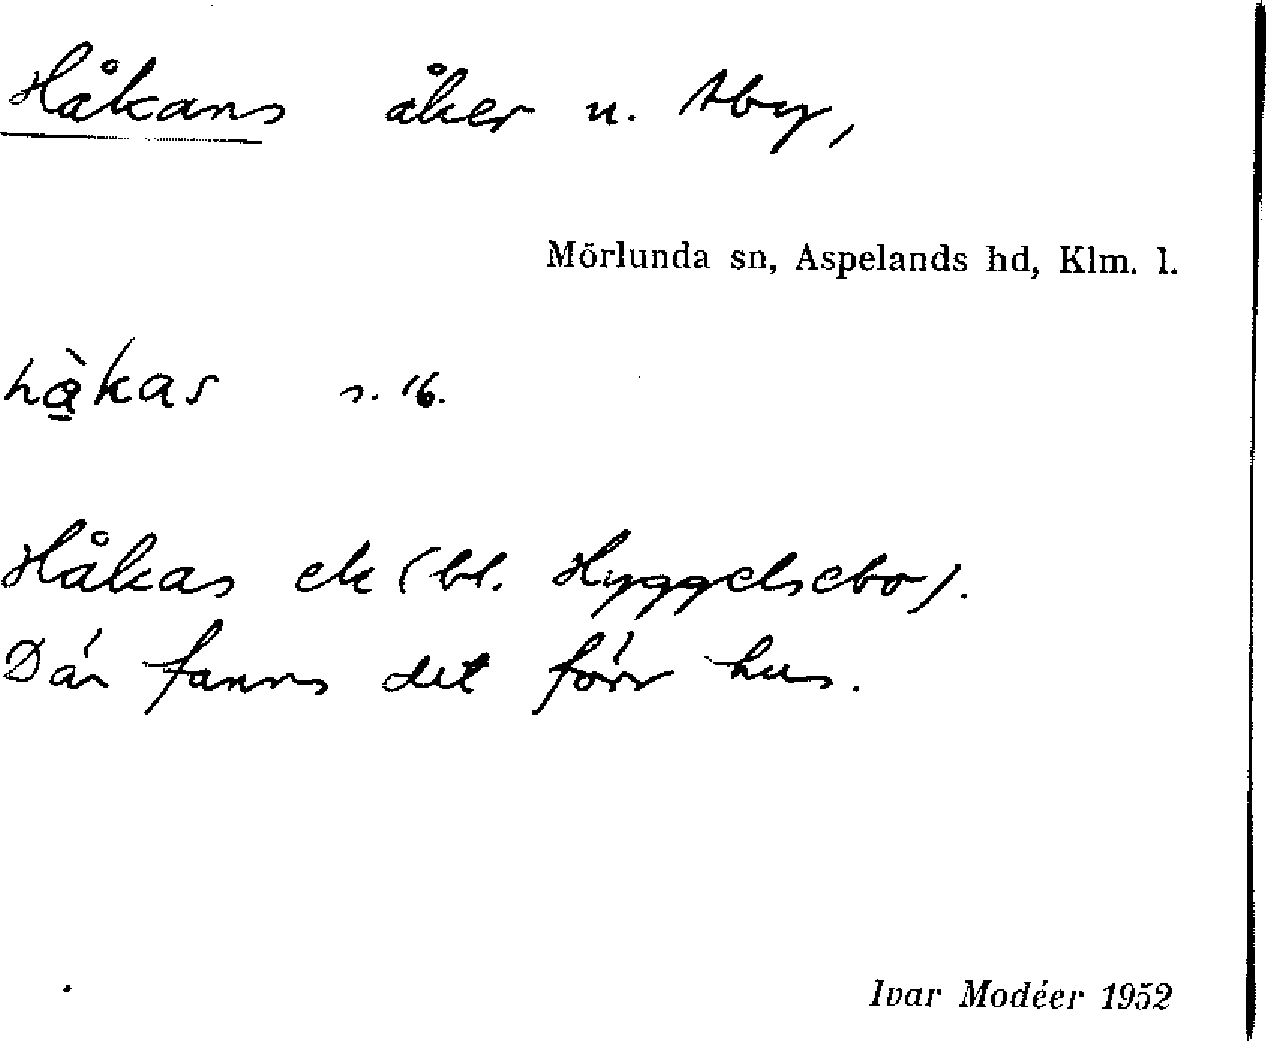 Håkans åker u. Åby,
Mörlunda sn, Aspelands hd, Klm. l.
hà̱kas s. 16.
Håkas ek (bl. Hyggelsebo).
Där fanns det förr hus.
Ivar Modéer 1952